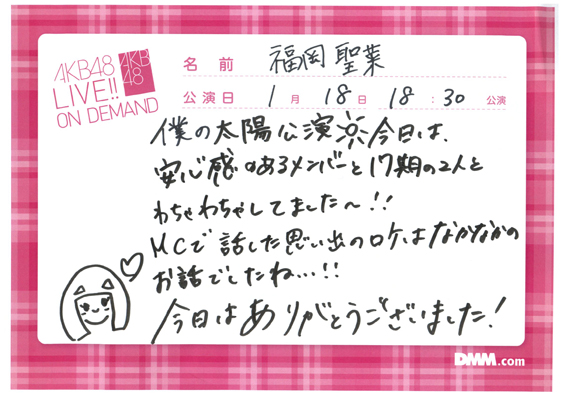 AKB48
LIVE!!
ON DEMAND
AKB
48
名前 福岡聖菜
公演日 1月18日 18:30 公演
僕の太陽公演 今日は、
安心感のあるメンバーと17期の2人と
わちゃわちゃしてました〜!!
MCで話した思い出のロケはなかなかの
お話でしたね…!!
今日はありがとうございました!
DMM.com